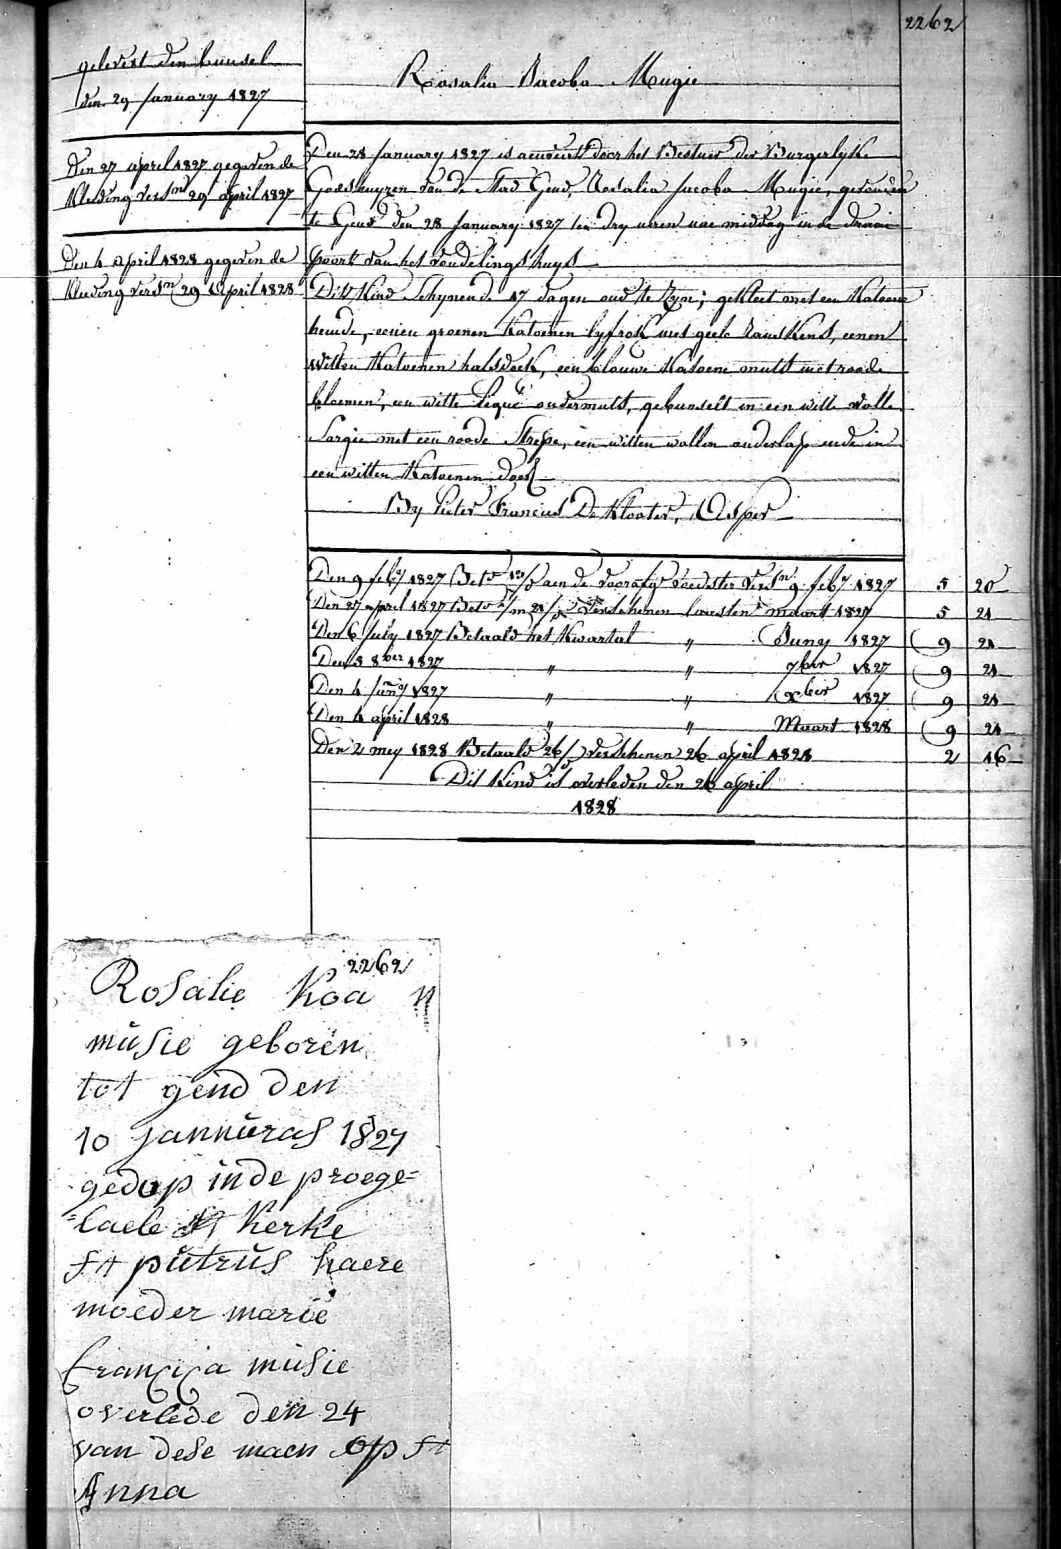 2262
gelevert den bunsel
den 29 January 1827
Den 27 april 1827 gegeven de
Kleeding versn 29 april 1827
Den 4 april 1828 gegeven de
Kleeding versn 29 april 1828
Rosalia Jacoba Mugie
Den 28 January 1827 is aenveirt door het Bestuer der Burgerlyke
Godshuyzen van de Stad Gend, Rosalia Jacoba Mugie, gevonden
te Gend den 28 January 1827 ten dry uren nae middag in de draai
poort van het vondelings huys
Dit Kind Schynende 17 dagen oud te zyn; gekleet met een Katoene
hemde, eenen groenen Katoenen lyfrok met geele, eenen
witten Katoenen halsdoek, een blauwe Katoene muts met roode
bloemen, een witte Piqué ondermuts, gebunselt in een witte wolle
Sargie met een roode Strepe, een witten wollen onderlap ende in
een witten Katoenen doek
By Pieter Francies De Klooter, Asper
Den 9 feby 1827 Bet aen de voorzorg voedster versn 9 feby 1827 5 20
Den 27 april 1827 Bet m 21/ verschenen maart 1827 5 21
Den 6 July 1827 Betaald het Kwartal " Juny 1827 9 21
Den 8ber 1827 " " 7ber 1827 9 21
Den 4 1827 " " Xber 1827 9 21
Den 4 april 1828 " " Maart 1828 9 21
Den 2 mey 1828 Betaald 26/ verschenen 26 april 1828 2 16
Dit Kind is overleden den 26 april
1828
2262
Rosalie Koa
musie geboren
tot gend den
10 jannuras 1827
gedop inde proege=
=laele Kerke
st putrus haere
moeder marie
francica musie
overlede den 24
van dese maen op st
Anna